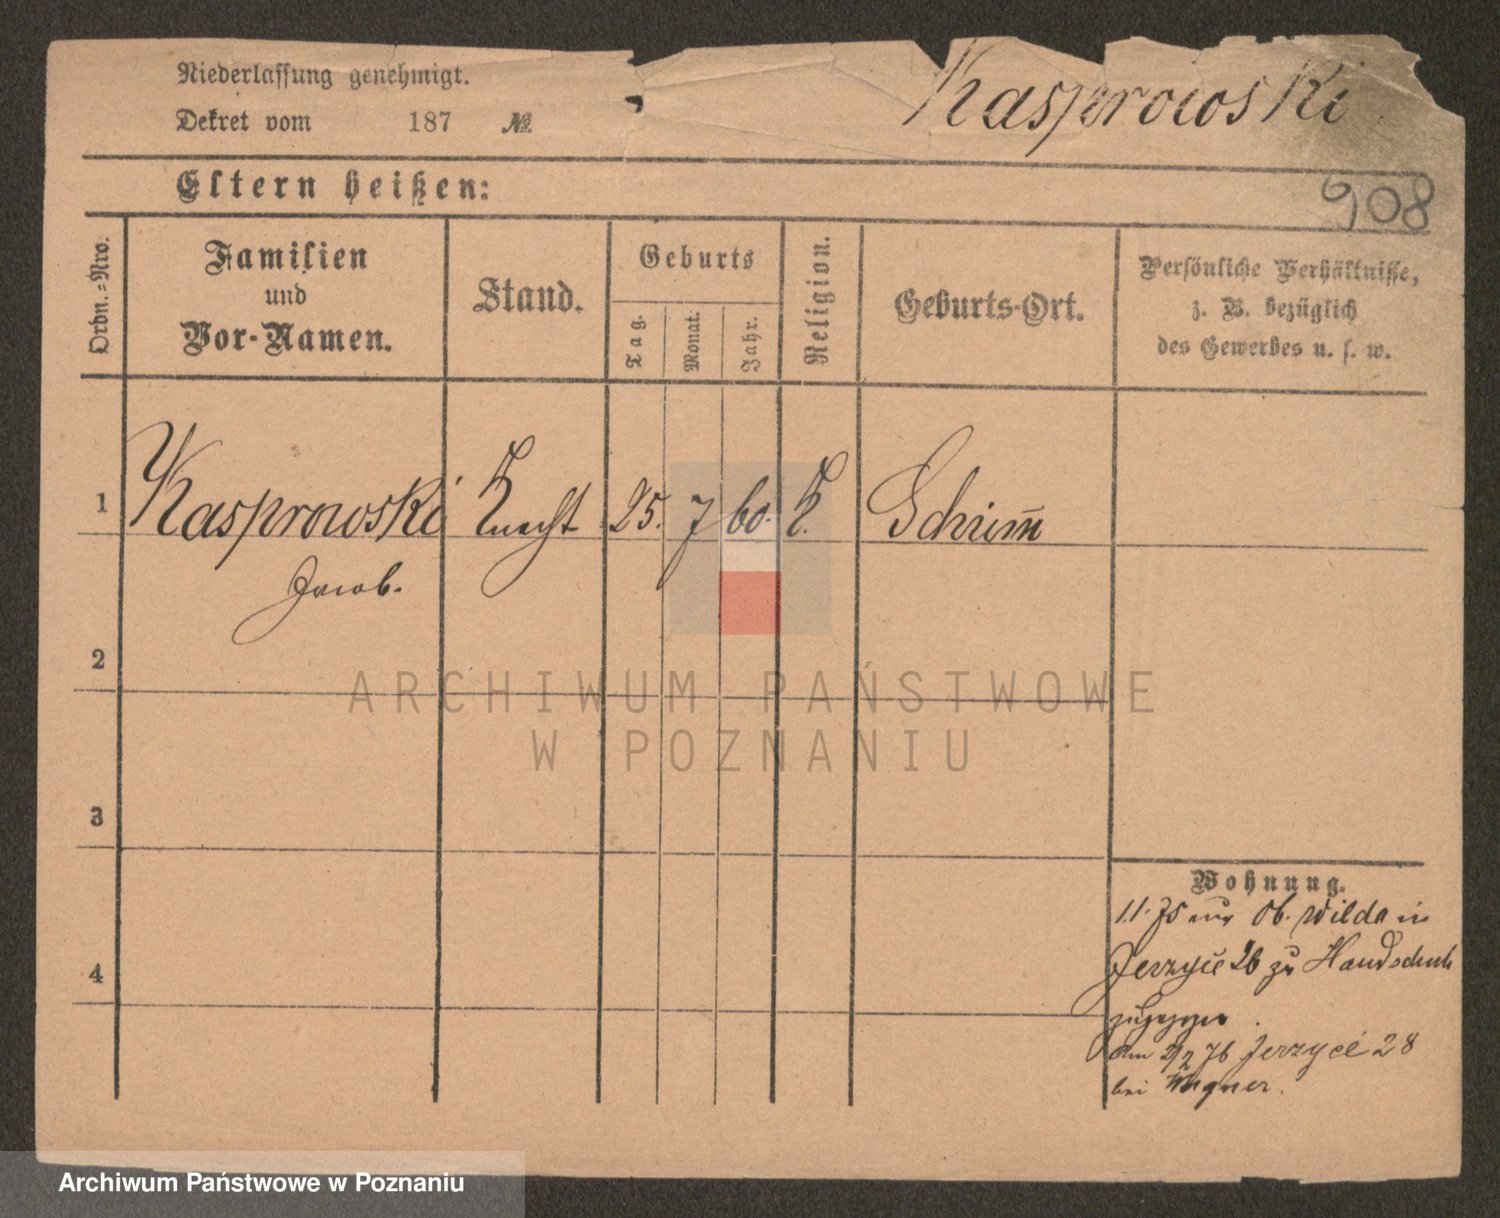 Niederlassung genehmigt.
Kasprowski
Dekret vom 187 №
Eltern heißen:
908
Ordn.=Nro.
Familien
und
Vor-Namen.
Stand.
Geburts
Tag.
Monat.
Jahr.
Religion.
Geburts-Ort.
Persönliche Verhältnisse,
z. B. bezüglich
des Gewerbes u. s. w.
1 Kasprowski Knecht 25. 7 60. K. Schrim̅
Jacob.
2
ARCHIWUM PAŃSTWOWE
W POZNANIU
3
Wohnung.
11. 75 aus Ob. Wilda in
Jerzyce 26 zu Handschuh
4
zugezogen.
Am 2/2 76 Jerzyce 28
bei Wagner.
Archiwum Państwowe w Poznaniu